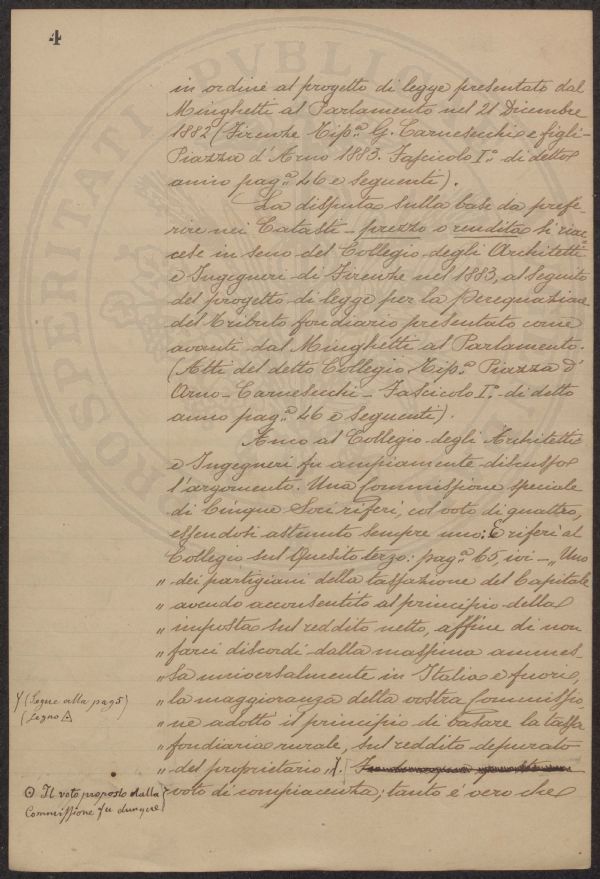 4
in ordine al progetto di legge presentato dal
Minghetti al Parlamento nel 21 Dicembre
1882 (Firenze Tip.ª G. Carnesecchi e figli -
Piazza d'Arno 1883. Fascicolo I.º di detto
anno pag.ª 46 e seguenti).
La disputa sulla base da prefe-
rire nei Catasti - prezzo o rendita si riac-
cese in seno del Collegio degli Architetti
e Ingegneri di Firenze nel 1883, al seguito
del progetto di legge per la Perequazione
del tributo fondiario presentato come
avanti dal Minghetti al Parlamento.
(Atti del detto Collegio Tip.ª Piazza d'
Arno - Carnesecchi - Fascicolo I.º di detto
anno pag.ª 46 e seguenti).
Anco al Collegio degli Architetti
e Ingegneri fu ampiamente discusso
l'argomento. Una Commissione speciale
di Cinque Soci riferì, col voto di quattro,
essendosi astenuto sempre uno: E riferì al
Collegio sul Quesito terzo: pag.ª 65, ivi - „ Uno
„ dei partigiani della tassazione del Capitale
„ avendo acconsentito al principio della
„ imposta sul reddito netto, affine di non
„ farci discordi dalla massima ammes-
„ sa universalmente in Italia e fuori,
„ la maggioranza della vostra Commissio
„ ne adottò il principio di basare la tassa
„ fondiaria rurale, sul reddito depurato
„ del proprietario,
voto di compiacenza; tanto è vero che
(Segue alla pag 5)
(segno Δ
⊙ Il voto proposto dalla
Commissione fu dunque
PVBLIC
PROSPERITATI